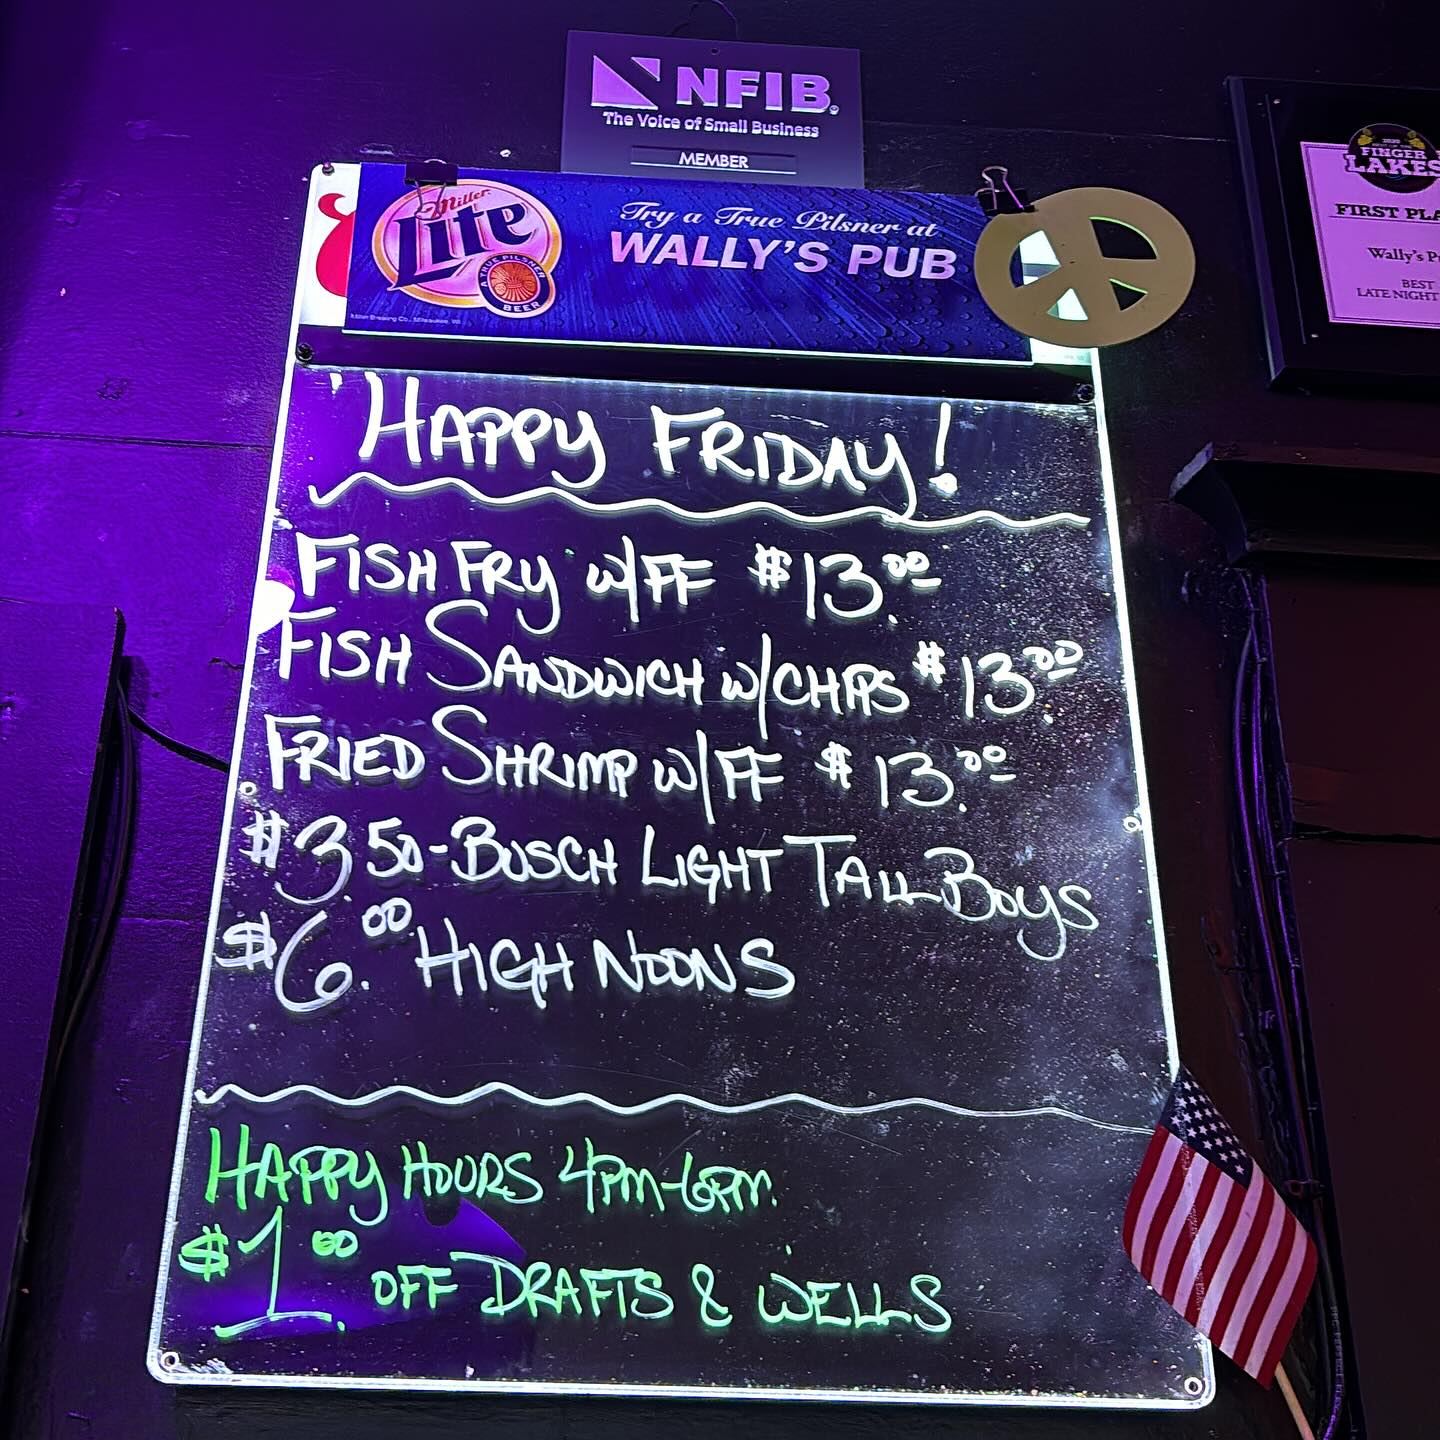 NFIB®
The Voice of Small Business
MEMBER
Miller
Lite
A TRUE PILSNER
BEER
Try a True Pilsner at
WALLY'S PUB
FINGER
LAKES
FIRST
Wally's
BEST
LATE NIGHT
HAPPY FRIDAY!
FISH FRY w/FF $13.00
FISH SANDWICH w/CHIPS $13.00
FRIED SHRIMP w/FF $13.00
$3.50-BUSCH LIGHT TALL BOYS
$6.00 HIGH NOONS
HAPPY HOURS 4PM-6PM.
$1.00 OFF DRAFTS & WELLS